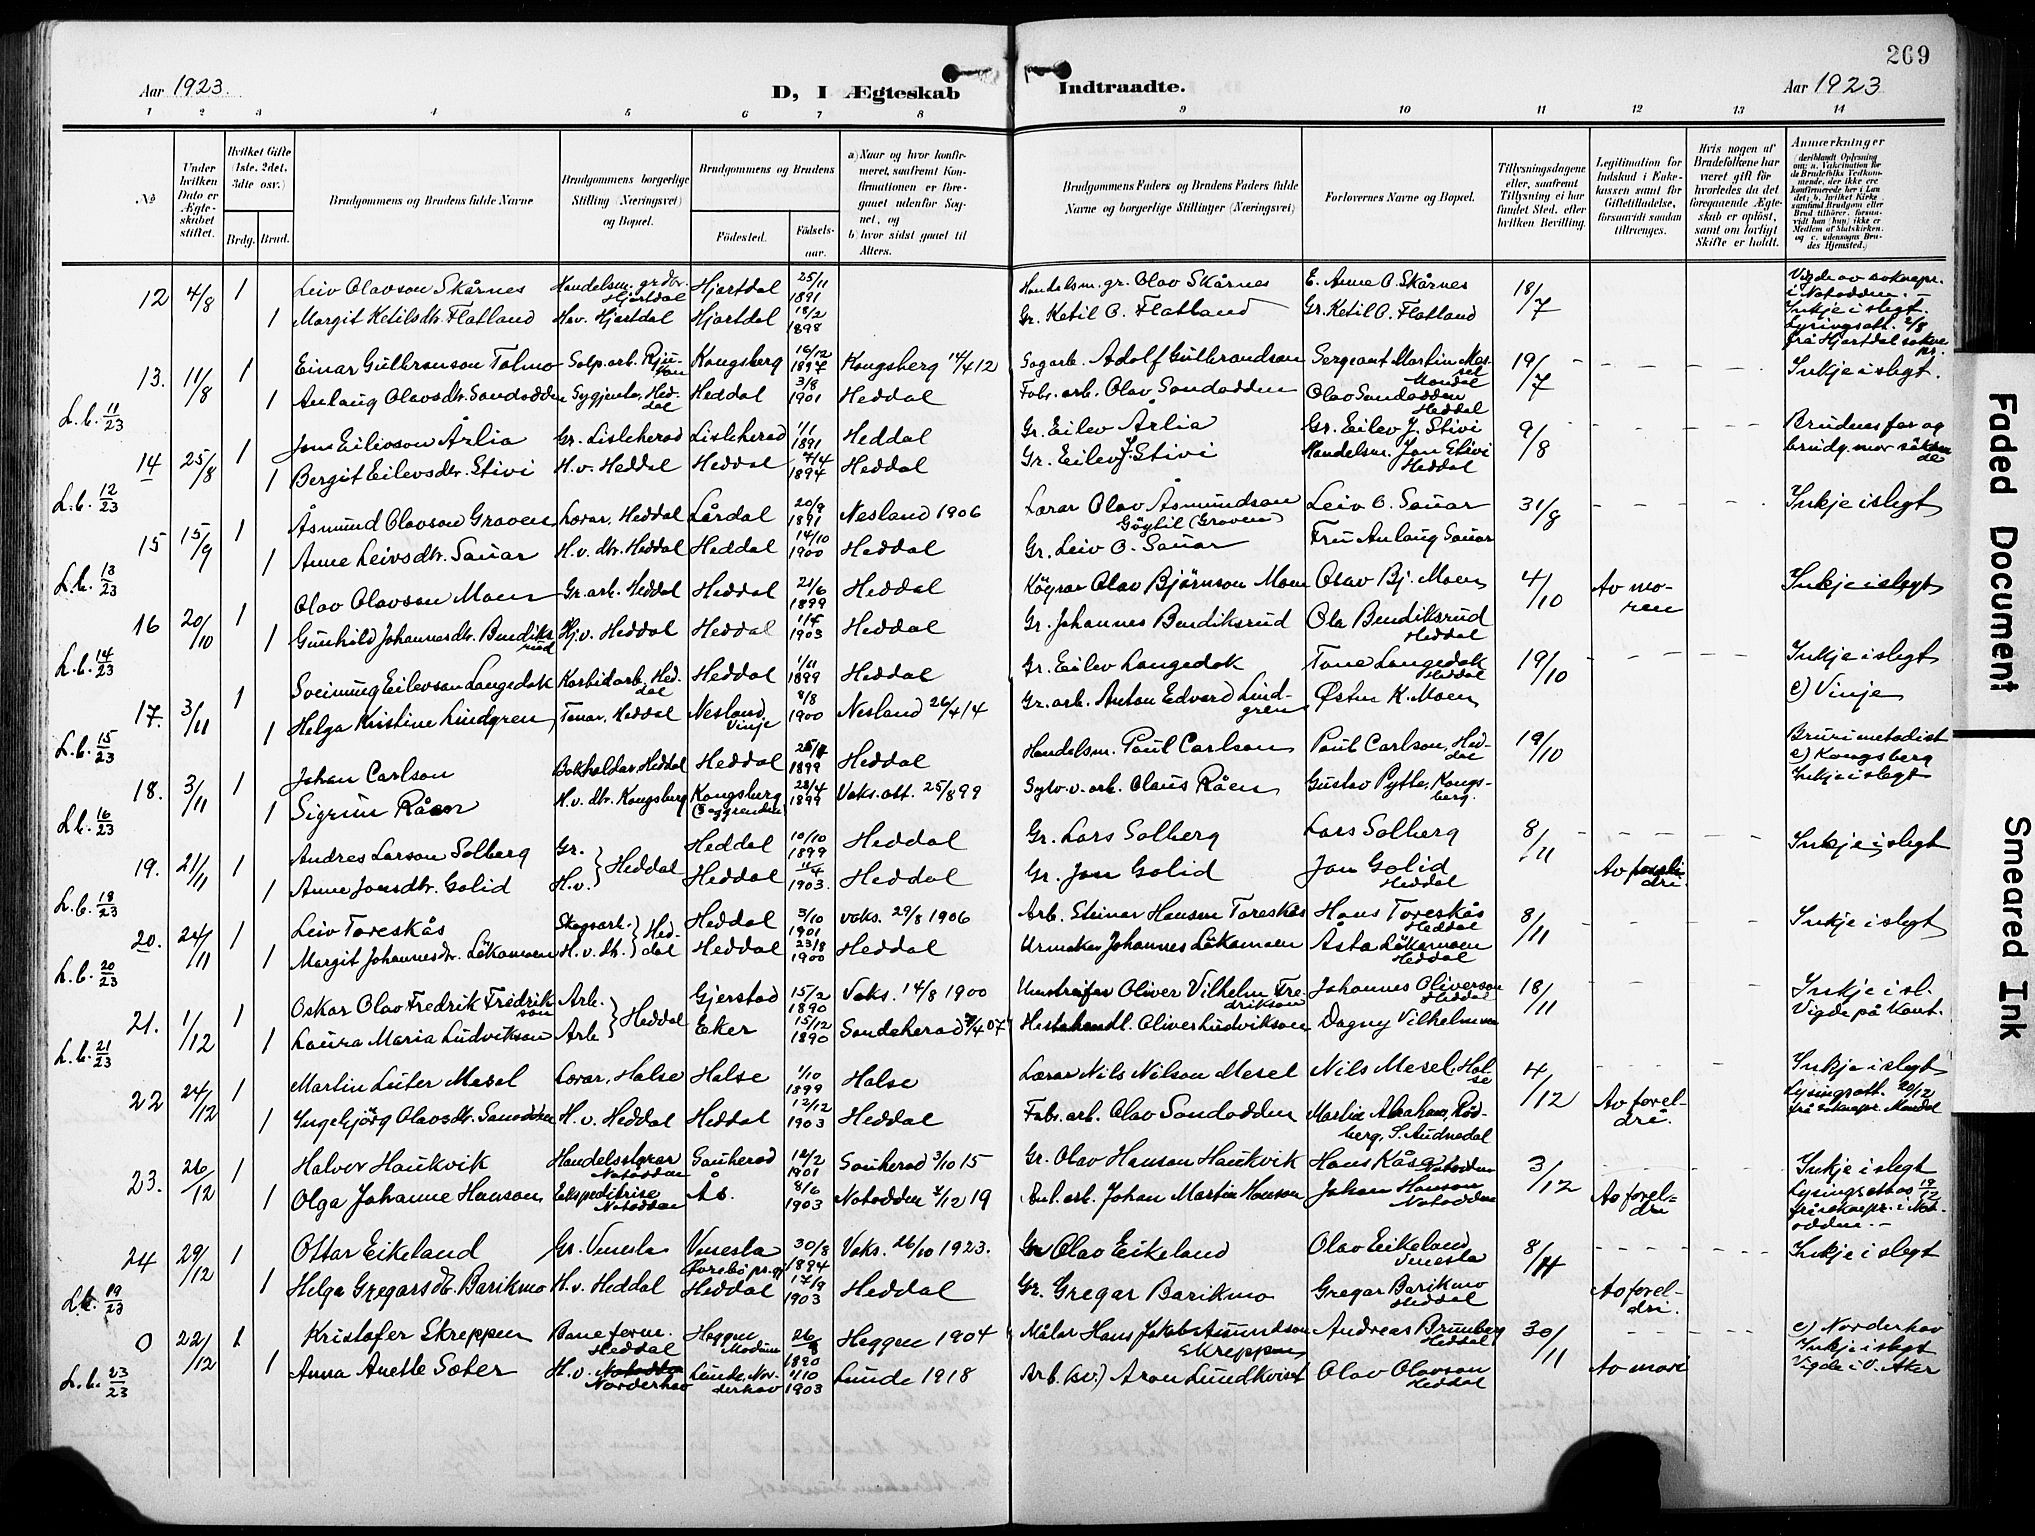 269
Aar 1923.
D, I Ægteskab Indtraadte.
Aar 1923
1 2 3 4 5 6 7 8 9 10 11 12 13 14
No
Under hvilken Dato er Ægteskabet stiftet.
Hvilket Gifte (1ste, 2det, 3dte osv.)
Brdg. Brud.
Brudgommens og Brudens fulde Navne
Brudgommens borgerlige Stilling (Næringsvei) og Bopæl.
Brudgommens og Brudens
Födested.
Födselsaar.
a) Naar og hvor konfirmeret, saafremt Konfirmationen er foregaaet udenfor Sognet, og
b) hvor sidst gaaet til Alters.
Brudgommens Faders og Brudens Faders fulde Navne og borgerlige Stillinger (Næringsvei)
Forlovernes Navne og Bopæl.
Tillysningsdagene eller, saafremt Tillysning ei har fundet Sted, efter hvilken Bevilling.
Legitimation for Indskud i Enkekassen samt for Giftetilladelse, forsaavidt saadan tiltrænges.
Hvis nogen af Brudefolkene har været gift før hvorledes da det foregaaende Ægteskab er opløst, samt om lovligt Skifte er holdt.
Anmærkninger
(deriblandt Oplysning om: a. Vakcination for de Brudefolks Vedkommende, der ikke ere konfirmerede her i Landet; b. hvilket Kirkesamfund Brudgom eller Brud tilhører, forsaavidt han (hun) ikke er Medlem af Statskirken, og c. udensogns Brudes Hjemsted.)
12 4/8 1 Leiv Olavson Skårnes Handelsm. gr. Hjartdal Hjartdal 25/11 1891 Handelsm. gr. Olav Skårnes E. Anne O. Skårnes 18/7 Vigde av soknepr. i Notodden. –
1 Margit Ketilsdtr. Flatland Hav. Hjartdal Hjartdal 18/2 1898 Gr. Ketil O. Flatland Gr. Ketil O. Flatland Inkje i slegt. Lysingsatt. 2/8 frå Hjartdal soknepr.
13. 11/8 1 Einar Gulbranson Tolmo Salp. arb. Rjukan Kongsberg 16/12 1897 Kongsberg 14/4 12 Sagarb. Adolf Gulbrandson Sergeant Martin Mesel Mandal 19/7 Inkje i slegt.
L.b. 11/23 1 Anlaug Olavsdtr. Sandodden Sygjente, Heddal Heddal 3/8 1901 Heddal Fabr. arb. Olav Sandodden Olav Sandodden Heddal
14 25/8 1 Jens Eilivson Årlia Gr. Lisleherad Lisleherad 1/1 1891 Heddal Gr. Eilev Årlia Gr. Eilev J. Stivi 9/8 Brudens far og brudg. mor søskende
L.b. 12/23 1 Bergit Eilevsdtr. Stivi H.v. Heddal Heddal 7/4 1894 Heddal Gr. Eilev J. Stivi Handelsm. Jon Stivi Heddal
15 15/9 1 Åsmund Olavson Graven Lærar, Heddal Lårdal 20/9 1891 Nesland 1906 Lærar Olav Åsmundson Gøytil (Graven) Leiv O. Sauar 31/8 Inkje i slegt
L.b. 13/23 1 Anne Leivsdtr. Sauar H.v. dtr. Heddal Heddal 14/10 1900 Heddal Gr. Leiv O. Sauar Fru Anlaug Sauar
16 20/10 1 Olav Olavson Moen Gr. arb. Heddal Heddal 21/6 1899 Heddal Køyrar Olav Bjørnson Moen Olav Bj. Moen 4/10 Av moren Inkje i slegt
L.b. 14/23 1 Gunhild Johannesdtr. Bendiksrud Hj.v. Heddal Heddal 1/4 1903 Heddal Gr. Johannes Bendiksrud Ola Bendiksrud Heddal
17. 3/11 1 Sveinung Eilevson Langedok Karbidarb. Heddal Heddal 1/11 1899 Heddal Gr. Eilev Langedok Tone Langedok Heddal 19/10 Inkje i slegt
L.b. 15/23 1 Helga Kristine Lindgren, Tenar, Heddal Nesland Vinje 8/8 1900 Nesland 26/4 14 Gr. arb. Anton Edvard Lindgren Østen K. Moen c) Vinje
18. 3/11 1 Johan Carlson Bokhaldar, Heddal Heddal 1899 Heddal Handelsm. Paul Carlson Paul Carlson, Heddal 19/10 Brur i metodist c) Kongsberg
L.b. 16/23 1 Sigrun Råen H.v. dtr. Kongsberg Kongsberg 28/4 1899 Vaks. att. 25/8 99 Sylv. v. arb. Olaus Råen Gustav Pytte, Kongsberg. Inkje i slegt
19. 21/11 1 Andres Larson Solberg Gr. } Heddal Heddal 10/10 1899 Heddal Gr. Lars Solberg Lars Solberg 8/11 Inkje i slegt
L.b. 18/23 1 Anne Jonsdtr. Golid H.v. Heddal 11/4 1903. Heddal Gr. Jon Golid Jon Golid Heddal Av foreldri.
20. 24/11 1 Leiv Toreskås Skogsarb. } Heddal Heddal 3/10 1901 vaks. 29/8 1906 Arb. Steinar Hanson Toreskås Hans Toreskås Heddal 8/11 Inkje i slegt
L.b. 20/23 1 Margit Johannesdtr. Løkamoen H.v. dtr. Heddal 23/8 1900 Heddal Urmakar Johannes Løkamoen Åsta Løkamoen Heddal
21. 1/12 1 Oskar Olav Fredrik Fredrikson Arb. } Heddal Gjerstad 15/2 1890 Vaks. 14/8 1900 Umstreifar Oliver Vilhelm Fredrikson Johannes Oliverson Heddal 18/11 Inkje i sl. Vigde på Kont.
L.b. 21/23 1 Laura Maria Ludvikson Arb. Eker 15/12 1890 Sandeherad 7/4 07 Hestehandl. Oliver Ludvikson Dagny Vilhelmsen
22 24/12 1 Martin Luter Mesel Lærar, Halse Halse 1/10 1899 Halse Lærar Nils Nilson Mesel Nils Mesel, Halse 4/12 Inkje i slegt
1 Yngebjörg Olavsdtr. Sandodden H.v. Heddal Heddal 12/12 1903 Heddal Fabr. arb. Olav Sandodden Martin Abraham Rødberg, S. Audnedal Av foreldri. Lysingsatt. 20/12 frå soknepr. Mandal
23. 26/12 1 Halvor Haukvik Handelsstyrar Notodden Sauherad 12/2 1901 Sauherad 3/10 15 Gr. Olav Hanson Haukvik Hans Kåsa Notodden 3/12 Inkje i slegt
1 Olga Johanne Hanson, Ekspeditrise Notodden Ås. 8/6 1903 Notodden 7/12 19 Johan Martin Hanson Johan Hanson Notodden Av foreldri Lysingsatt. 19/12 frå soknepr. i Notodden. –
24 29/12 1 Ottar Eikeland Gr. Venesla Venesla Øvrebø pr.gj. 30/8 1894 Vaks. 26/10 1923. Gr. Olav Eikeland Olav Eikeland Venesla 8/11 Inkje i slegt
L.b. 19/23 1 Helga Gregarsdt. Barikmo H.v. Heddal Heddal 17/9 1903 Heddal Gr. Gregar Barikmo Gregar Barikmo Heddal Av foreldri.
0 22/12 1 Kristofer Skreppen Baneform. Heddal Heggen Modum 26/8 1890 Heggen 1904 Målar Hans Jakob Amundson Skreppen Andreas Brunberg Heddal 30/11 c) Norderhov Inkje i slegt
L.b. 23/23 1 Anna Anette Sæter H.v. Notodden Norderhov Lunde, Norderhov 1/10 1903 Lunde 1918 Arb. (sv.) Aron Lundkvist Olav Olavson Heddal Av mori Vigde i V. Aker
Faded Document
Smeared Ink